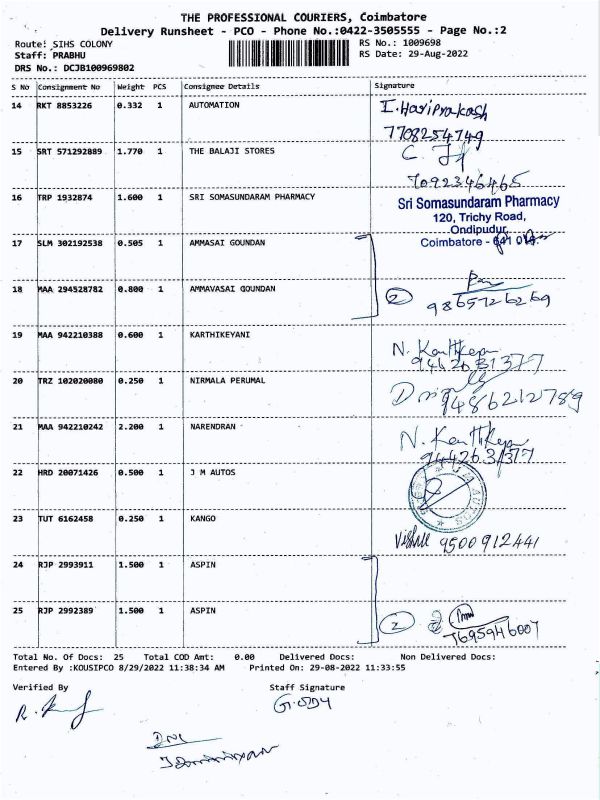 THE PROFESSIONAL COURIERS, Coimbatore
Delivery Runsheet - PCO - Phone No.:0422-3505555 - Page No.:2
Route: SIHS COLONY RS No.: 1009698
Staff: PRABHU RS Date: 29-Aug-2022
DRS No.: DCJB100969802
S No Consignment No Weight PCS Consignee Details Signature
14 RKT 8853226 0.332 1 AUTOMATION I. Hariprakash
7708254749
15 SRT 571292889 1.770 1 THE BALAJI STORES
7092346465
16 TRP 1932874 1.600 1 SRI SOMASUNDARAM PHARMACY Sri Somasundaram Pharmacy
120, Trichy Road,
Ondipudur,
17 SLM 302192538 0.505 1 AMMASAI GOUNDAN Coimbatore -
18 MAA 294528782 0.800 1 AMMAVASAI GOUNDAN 2
9865726269
19 MAA 942210388 0.600 1 KARTHIKEYANI N. Karthikeyan
20 TRZ 102020080 0.250 1 NIRMALA PERUMAL
9486212789
21 MAA 942210242 2.200 1 NARENDRAN N. Karthikeyan
9442631377
22 HRD 20071426 0.500 1 J M AUTOS
23 TUT 6162458 0.250 1 KANGO
9500912441
24 RJP 2993911 1.500 1 ASPIN
25 RJP 2992389 1.500 1 ASPIN 2
7695946007
Total No. Of Docs: 25 Total COD Amt: 0.00 Delivered Docs: Non Delivered Docs:
Entered By :KOUSIPCO 8/29/2022 11:38:34 AM Printed On: 29-08-2022 11:33:55
Verified By Staff Signature